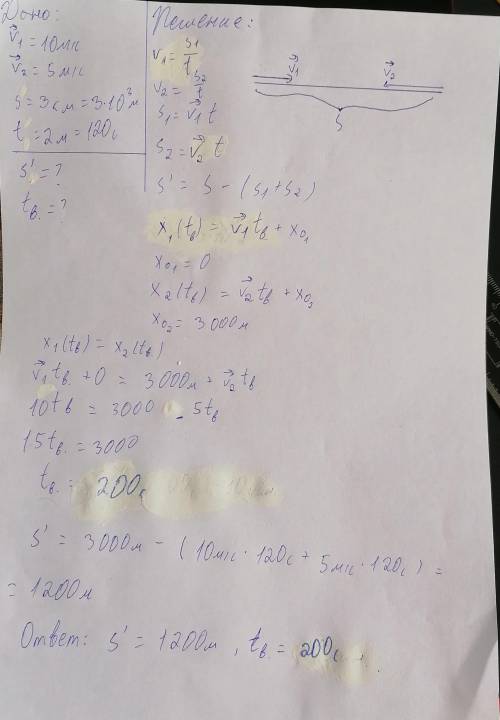 Дано:
v⃗1 = 10м/с
v⃗2 = 5м/с
s = 3км = 3·10³м
t = 2м = 120с
s' = ?
tв. = ?
Решение:
v1 = s1/t
v2 = s2/t
s1 = v⃗1 t
s2 = v⃗2 t
s' = s - (s1 + s2)
v⃗1 v⃗2
s
x1(tв) = v⃗1 tв + x01
x01 = 0
x2(tв) = v⃗2 tв + x02
x02 = 3000м
x1(tв) = x2(tв)
v⃗1 tв. + 0 = 3000м - v⃗2 tв
10tв = 3000 - 5tв
15tв. = 3000
tв. = 200с
s' = 3000м - (10м/с · 120с + 5м/с · 120с) =
= 1200м
Ответ: s' = 1200м, tв. = 200с.